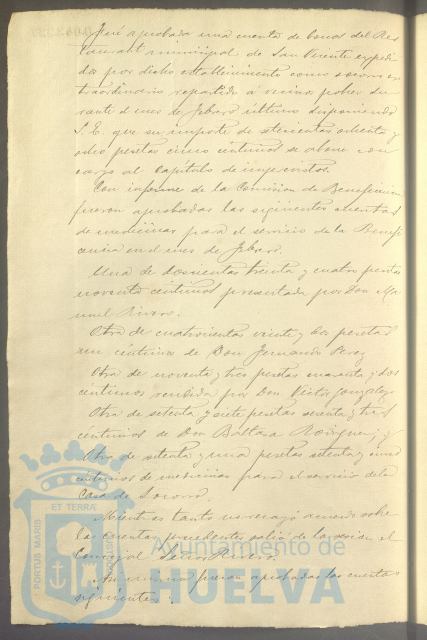 Fué aprobada una cuenta de bonos del Res
taurant municipal de San Vicente expedi
dos por dicho establecimiento como socorro ex
traordinario repartido á vecinos pobres du
rante el mes de Febrero último disponiendo
S. E. que su importe de setecientas ochenta y
ocho pesetas cinco céntimos se abone con
cargo al Capítulo de imprevistos.
Con informe de la Comision de Beneficencia
fueron aprobadas las siguientes cuentas
de medicinas para el servicio de la Benefi
cencia en el mes de Febrero.
Una de doscientas treinta y cuatro pesetas
noventa céntimos presentada por Don Ma
nuel Rivero.
Otra de cuatrocientas veinte y tres pesetas
un céntimo de Don Fernando Perez
Otra de noventa y tres pesetas cuarenta y dos
céntimos rendida por Don Victor Gonzalez
Otra de setenta y siete pesetas sesenta y tres
céntimos de Don Baltasar Rodriguez; y
Otra de setenta y una pesetas setenta y cinco
céntimos de medicinas para el servicio de la
Casa de Socorro.
Mientras tanto se acuerdo sobre
las cuentas precedentes salió de la sesion el
Concejal Señor Rivero.
fueron aprobadas las cuentas
siguientes:
PORTUS MARIS ET TERRAE
Ayuntamiento de
HUELVA